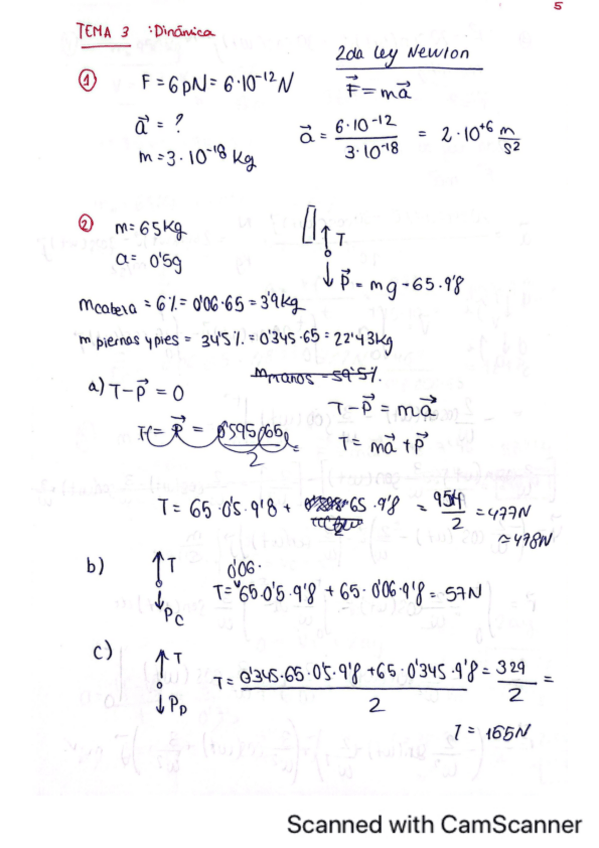 5
TEMA 3 : Dinámica
2da Ley Newton
① F = 6 pN = 6·10⁻¹² N
F⃗ = ma⃗
a⃗ = ?
a⃗ = 6·10⁻¹² / 3·10⁻¹⁸ = 2·10⁺⁶ m/s²
m = 3·10⁻¹⁸ Kg
② m = 65 Kg
T
a = 0'5g
P⃗ = mg - 65·9'8
mcabeza = 6% = 0'06·65 = 3'9 kg
m piernas y pies = 34'5% = 0'345·65 = 22'43 kg
m manos = 59'5%
a) T - P⃗ = 0
T - P⃗ = ma⃗
T = P⃗ = 0'595·65 / 2 =
T = ma⃗ + P⃗
T = 65·0'5·9'8 + 65·9'8 = 954 / 2 = 477N
≈ 478N
b) T
0'06·
T = 65·0'5·9'8 + 65·0'06·9'8 = 57N
Pc
c) T
T = 0'345·65·0'5·9'8 + 65·0'345·9'8 / 2 = 329 / 2 =
Pp
T = 165N
Scanned with CamScanner